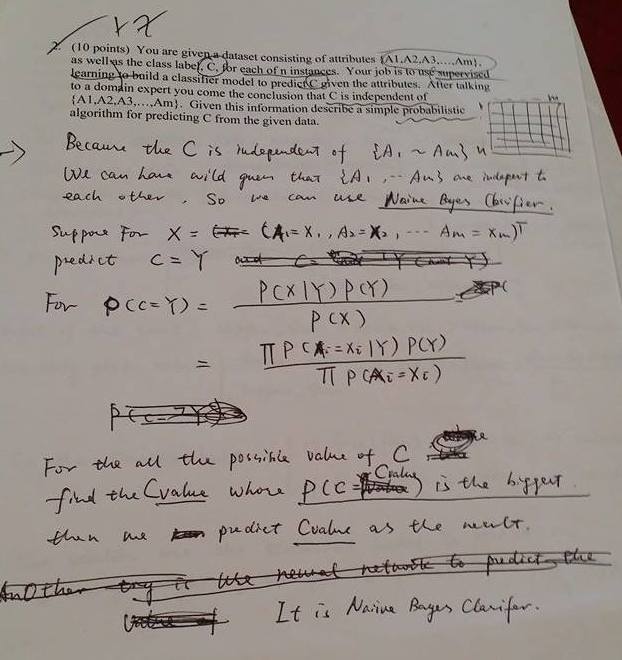 2. (10 points) You are given a dataset consisting of attributes {A1,A2,A3,...,Am},
as well as the class label, C, for each of n instances. Your job is to use supervised
learning to build a classifier model to predict C given the attributes. After talking
to a domain expert you come the conclusion that C is independent of
{A1,A2,A3,...,Am}. Given this information describe a simple probabilistic
algorithm for predicting C from the given data.
Because the C is independent of {A1 ~ Am}
We can have wild guess that {A1, -- Am} are indepent to
each other. So we can use Naive Bayes Classifier.
Suppose For X = (A1=X1, A2=X2, --- Am=Xm)T
predict C=Y
For P(C=Y) = P(X|Y) P(Y)
P(X)
= Π P(Ai=Xi|Y) P(Y)
Π P(Ai=Xi)
For the all the possible value of C
find the Cvalue whose P(C=Cvalue) is the biggest.
then we predict Cvalue as the result.
Another try is use neural network to predict the
value of It is Naive Bayes Clasifer.